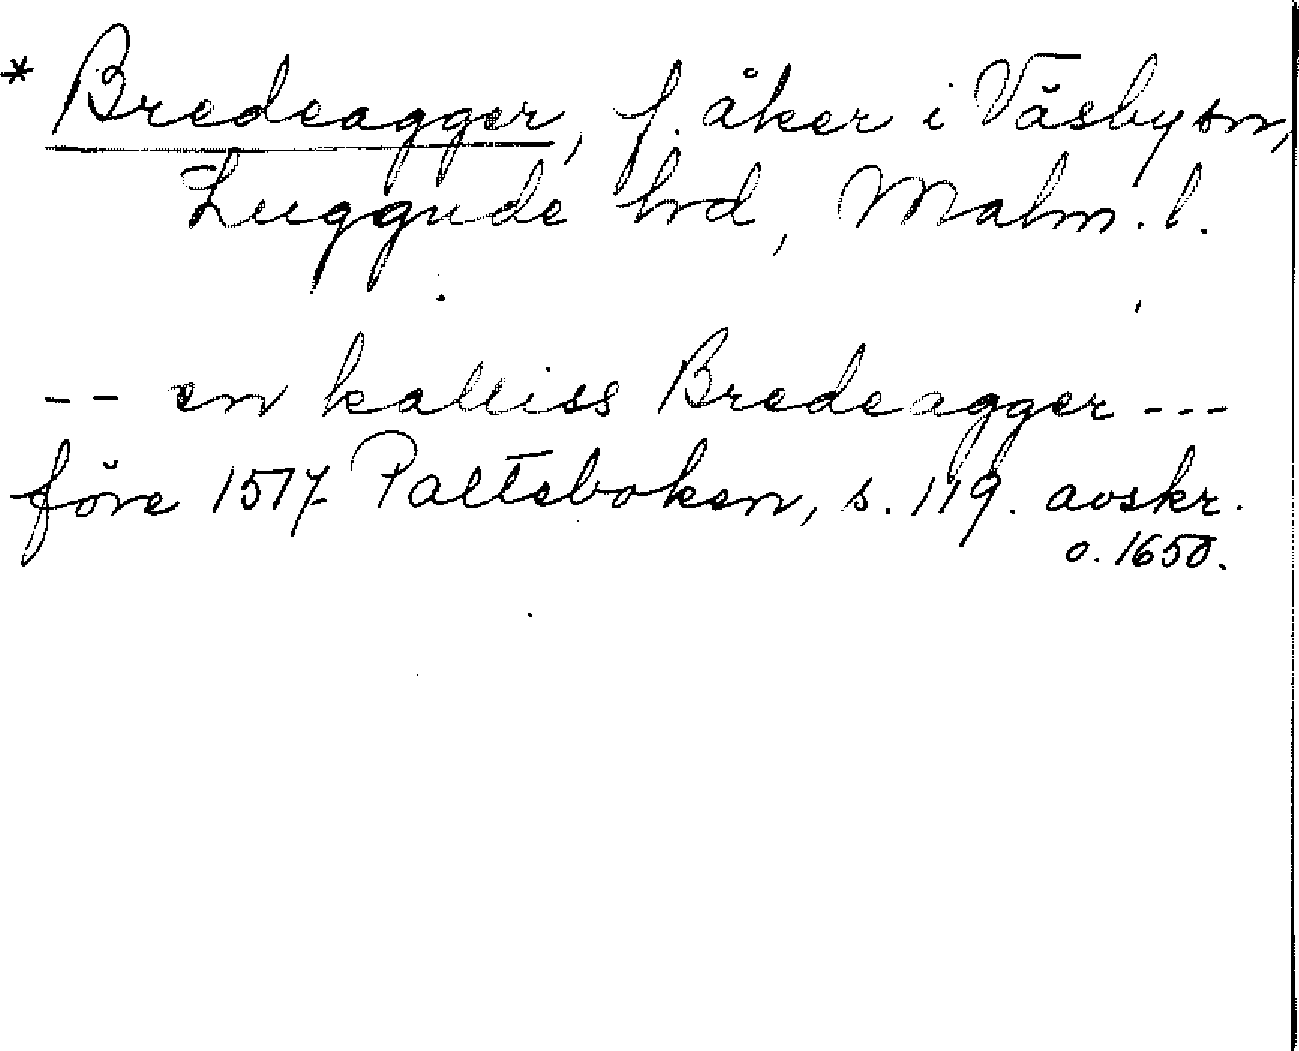 * Bredeagger, f. åker i Väsby sn,
Luggude hd, Malm. l.
-- en kalleiss Bredeagger ---
före 1517 Palteboken, s. 119. avskr.
o. 1650.